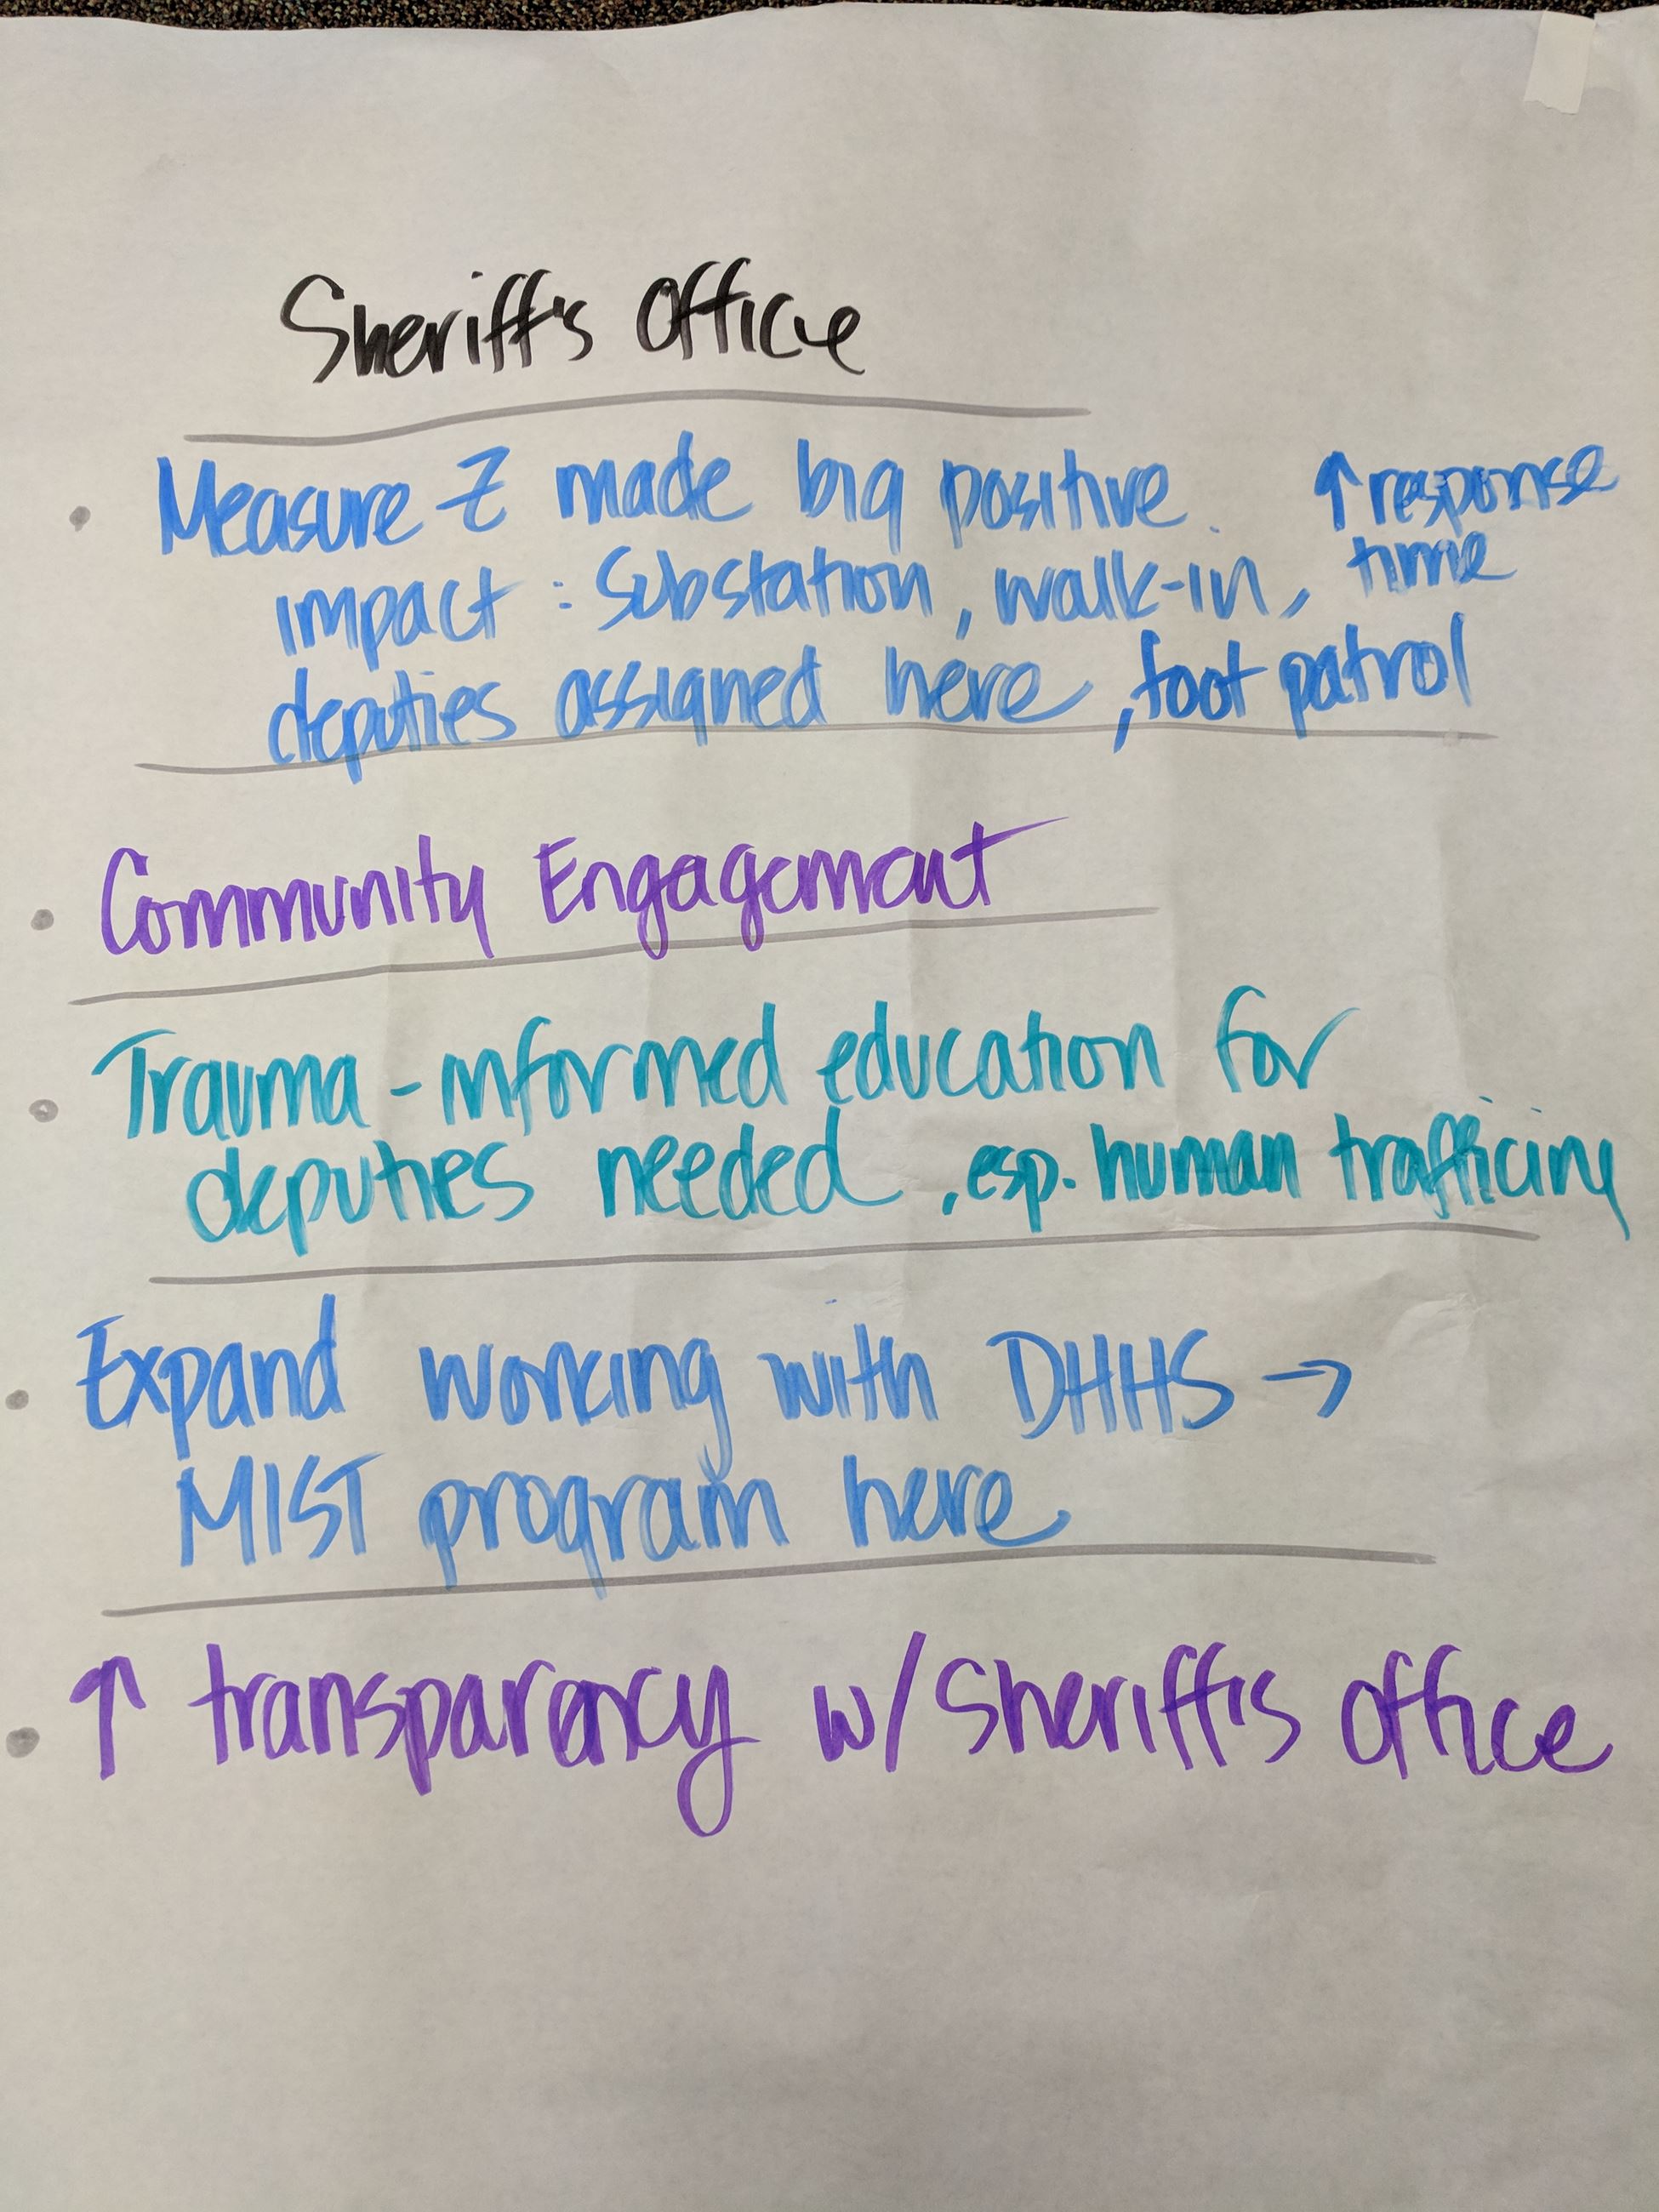 Sheriff's Office
• Measure Z made big positive ↑ response
impact : Substation, walk-in, time
deputies assigned here, foot patrol
• Community Engagement
• Trauma-informed education for
deputies needed, esp. human trafficing
• Expand working with DHHS →
MIST program here
• ↑ transparency w/ Sheriff's office